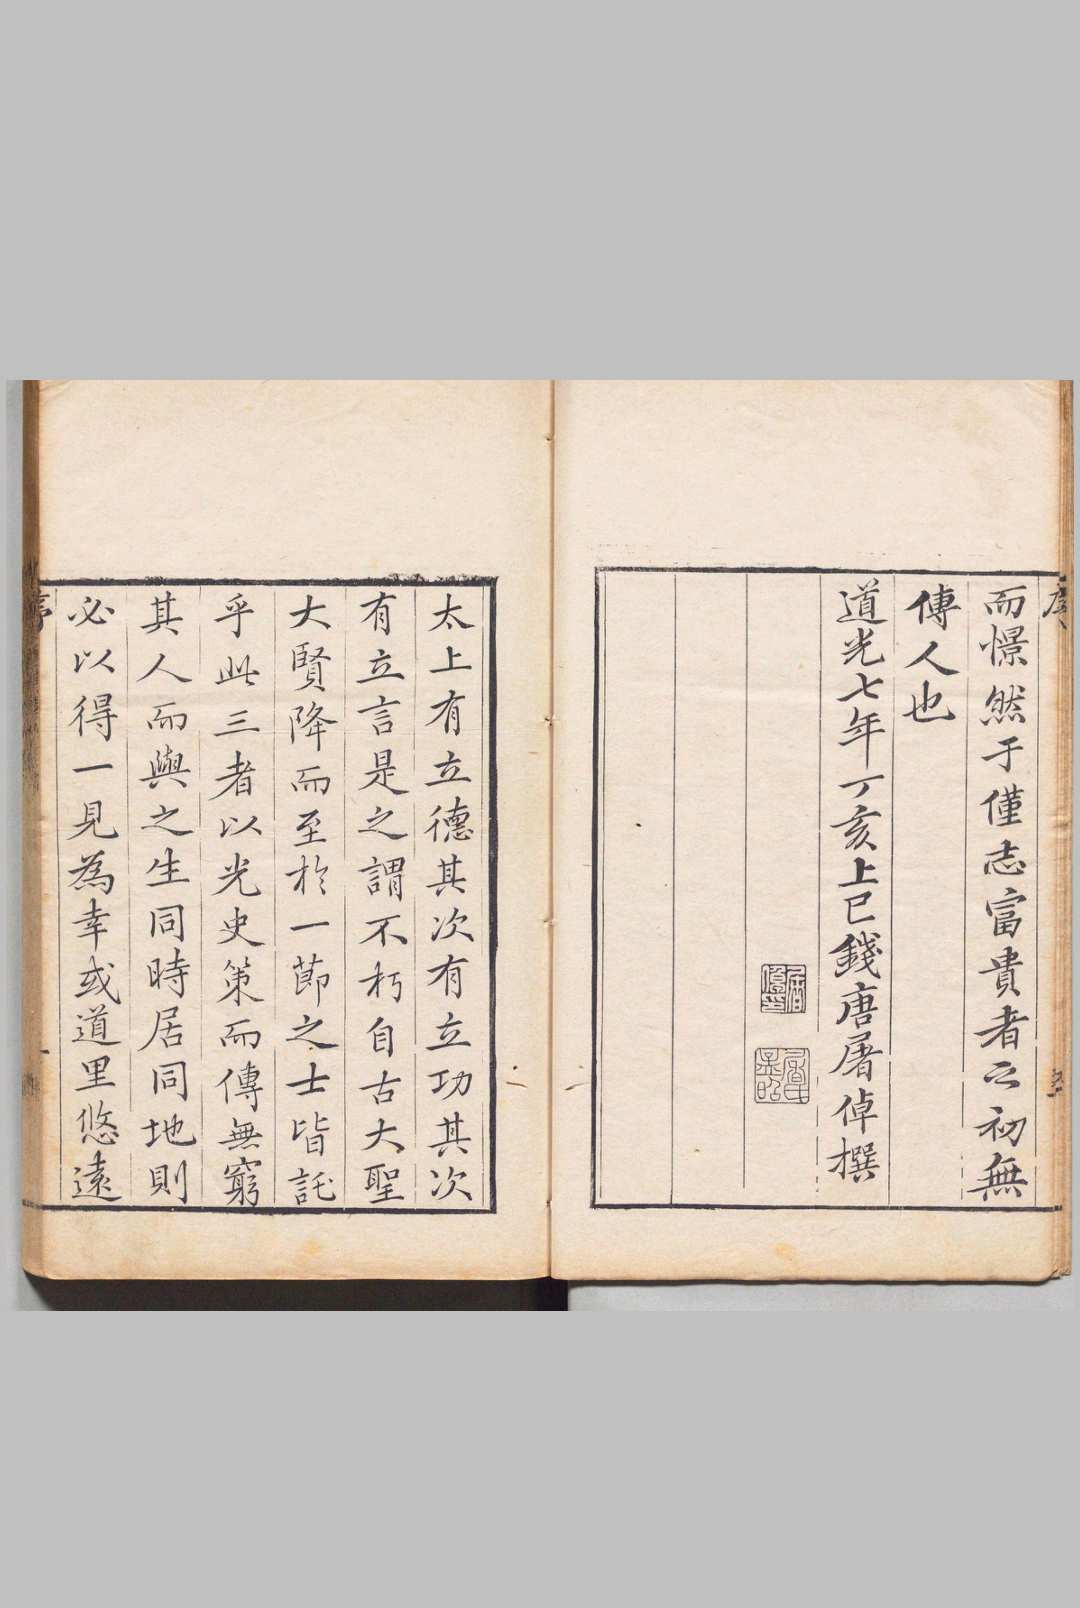 而憬然于僅志富貴者之初無
傳人也
道光七年丁亥上巳錢唐屠倬撰
太上有立德其次有立功其次
有立言是之謂不朽自古大聖
大賢降而至於一節之士皆託
乎此三者以光史策而傳無窮
其人而與之生同時居同地則
必以得一見為幸或道里悠遠
序